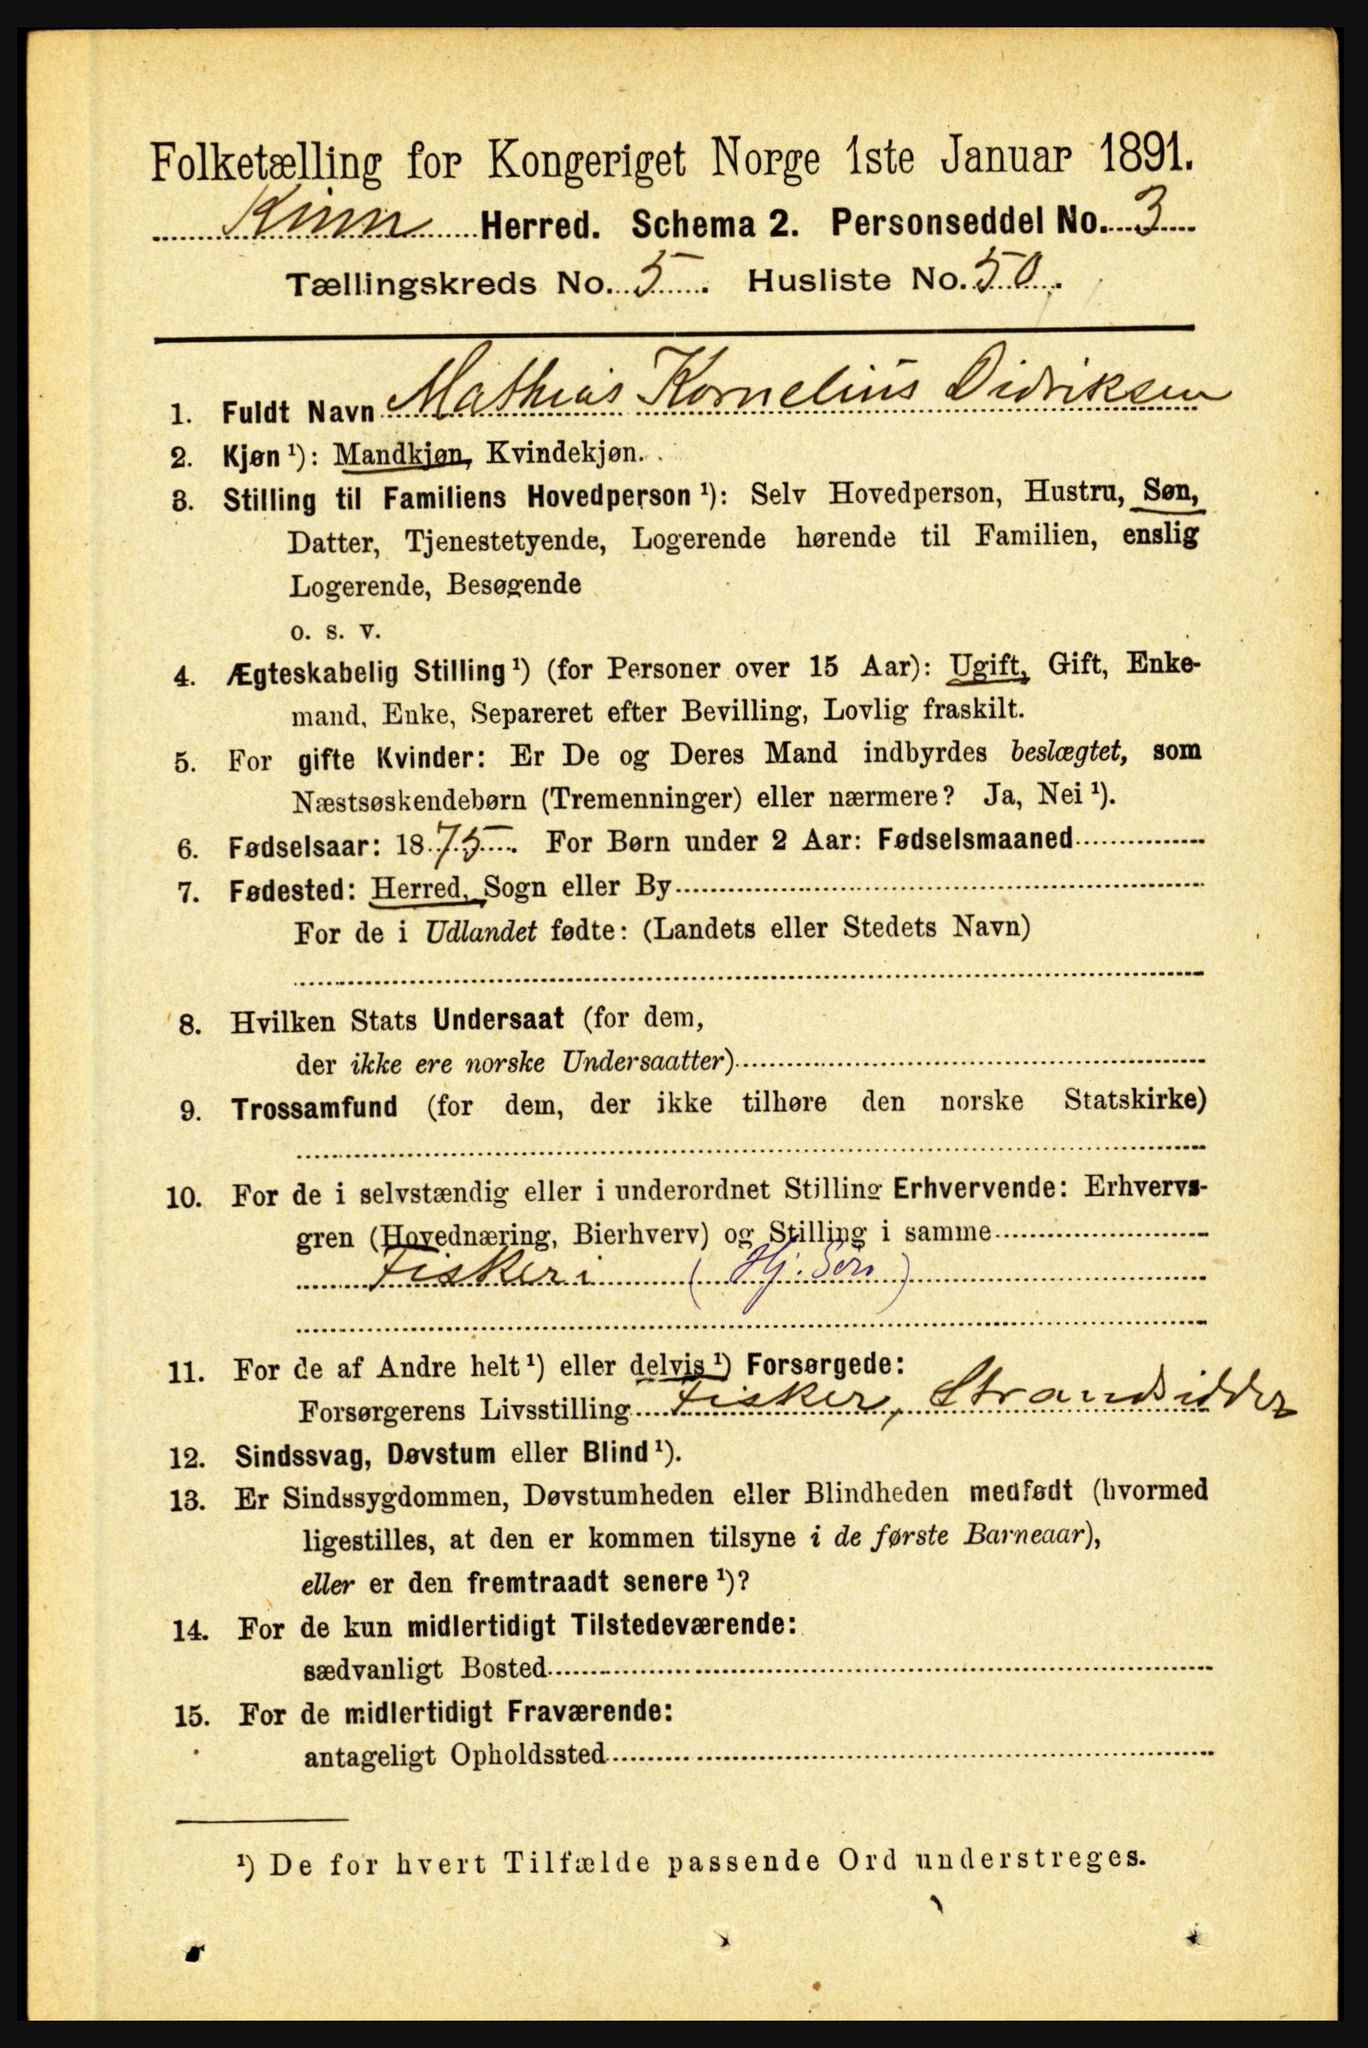 Folketælling for Kongeriget Norge 1ste Januar 1891.
Kinn Herred. Schema 2. Personseddel No. 3
Tællingskreds No. 5. Husliste No. 50.
1. Fuldt Navn Mathias Kornelius Didriksen
2. Kjøn ¹): Mandkjøn, Kvindekjøn.
3. Stilling til Familiens Hovedperson ¹): Selv Hovedperson, Hustru, Søn,
Datter, Tjenestetyende, Logerende hørende til Familien, enslig
Logerende, Besøgende
o. s. v.
4. Ægteskabelig Stilling ¹) (for Personer over 15 Aar): Ugift, Gift, Enke-
mand, Enke, Separeret efter Bevilling, Lovlig fraskilt.
5. For gifte Kvinder: Er De og Deres Mand indbyrdes beslægtet, som
Næstsøskendebørn (Tremenninger) eller nærmere? Ja, Nei ¹).
6. Fødselsaar: 1875. For Børn under 2 Aar: Fødselsmaaned
7. Fødested: Herred, Sogn eller By
For de i Udlandet fødte: (Landets eller Stedets Navn)
8. Hvilken Stats Undersaat (for dem,
der ikke ere norske Undersaatter)
9. Trossamfund (for dem, der ikke tilhøre den norske Statskirke)
10. For de i selvstændig eller i underordnet Stilling Erhvervende: Erhvervs-
gren (Hovednæring, Bierhverv) og Stilling i samme
Fiskeri (Hj. Søn)
11. For de af Andre helt ¹) eller delvis ¹) Forsørgede:
Forsørgerens Livsstilling Fisker, Strandsidder
12. Sindssvag, Døvstum eller Blind ¹).
13. Er Sindssygdommen, Døvstumheden eller Blindheden medfødt (hvormed
ligestilles, at den er kommen tilsyne i de første Barneaar),
eller er den fremtraadt senere ¹)?
14. For de kun midlertidigt Tilstedeværende:
sædvanligt Bosted
15. For de midlertidigt Fraværende:
antageligt Opholdssted
¹) De for hvert Tilfælde passende Ord understreges.